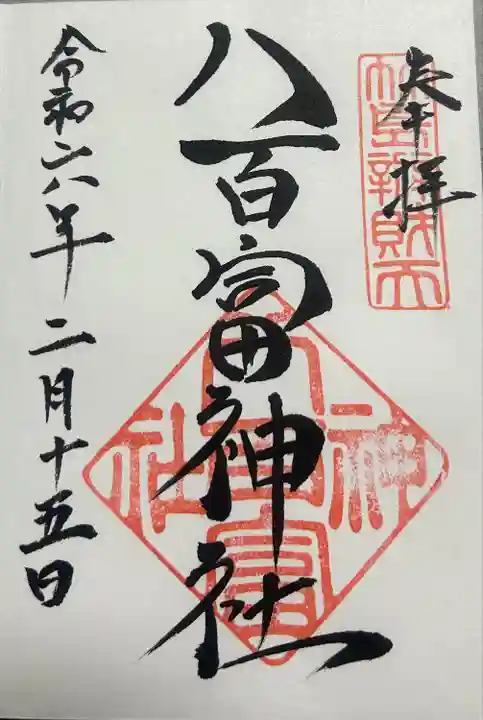 奉拝
竹島辨財天
八百富神社
八百富神社
令和六年二月十五日